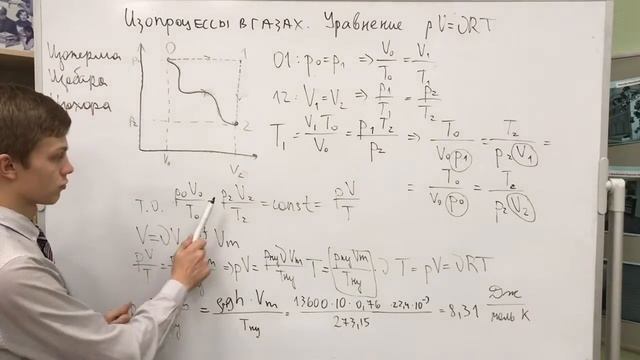 Изопроцессы в газах. Уравнение pV=νRT
Изотерма
Изобара
Изохора
p₁
0
1
p₂
2
V₀
V₂
01: p₀=p₁ ⇒ V₀/T₀ = V₁/T₁
12: V₁=V₂ ⇒ p₁/T₁ = p₂/T₂
T₁ = V₁T₀/V₀ = p₁T₂/p₂ ⇒ T₀/(V₀p₁) = T₂/(p₂V₁) =
= T₀/(V₀p₀) = T₂/(p₂V₂)
т.о. p₀V₀/T₀ = p₂V₂/T₂ = const = pV/T
V=νV Vₘ
pV/T = ⇒ pV = pₙᵧνVₘ/Tₙᵧ T = pₙᵧVₘ/Tₙᵧ · ν T = pV = νRT
= ρgh·Vₘ/Tₙᵧ = 13600·10·0,76·22,4·10⁻³/273,15 = 8,31 Дж/моль К